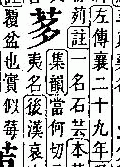 左傳襄二十九年
茢註一名石芸本
茤
集韻當何切
夷名後漢哀
覆盆也實似莓